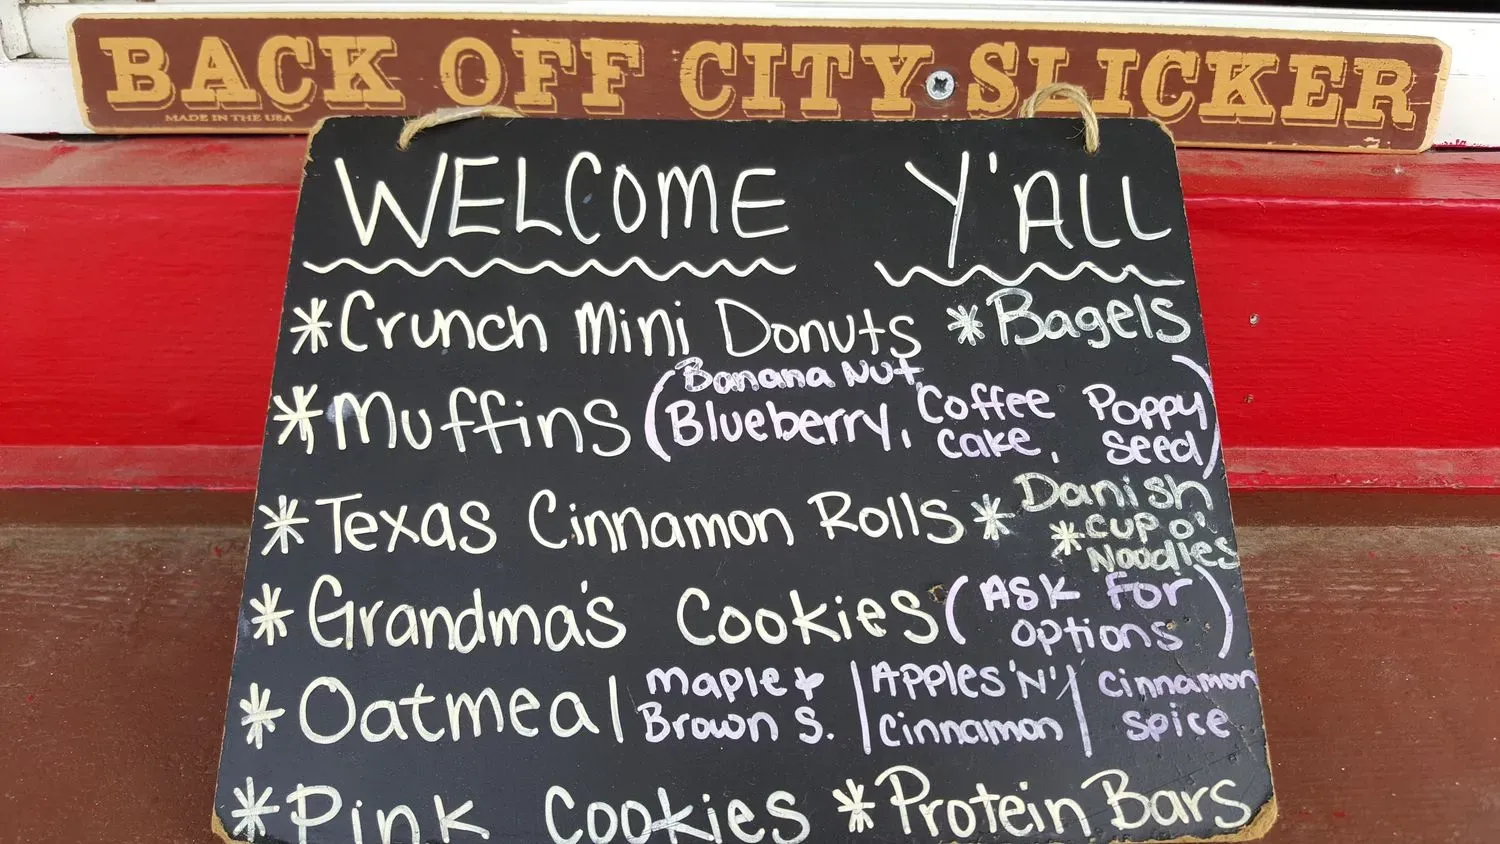 BACK OFF CITY SLICKER
MADE IN THE USA
WELCOME Y'ALL
*Crunch Mini Donuts *Bagels
*Muffins (Banana Nut,
Blueberry, Coffee Cake, Poppy Seed)
*Texas Cinnamon Rolls *Danish
*Cup O' Noodles
*Grandma's Cookies (Ask for options)
*Oatmeal Maple & Brown S. | Apples 'N' Cinnamon | Cinnamon Spice
*Pink Cookies *Protein Bars